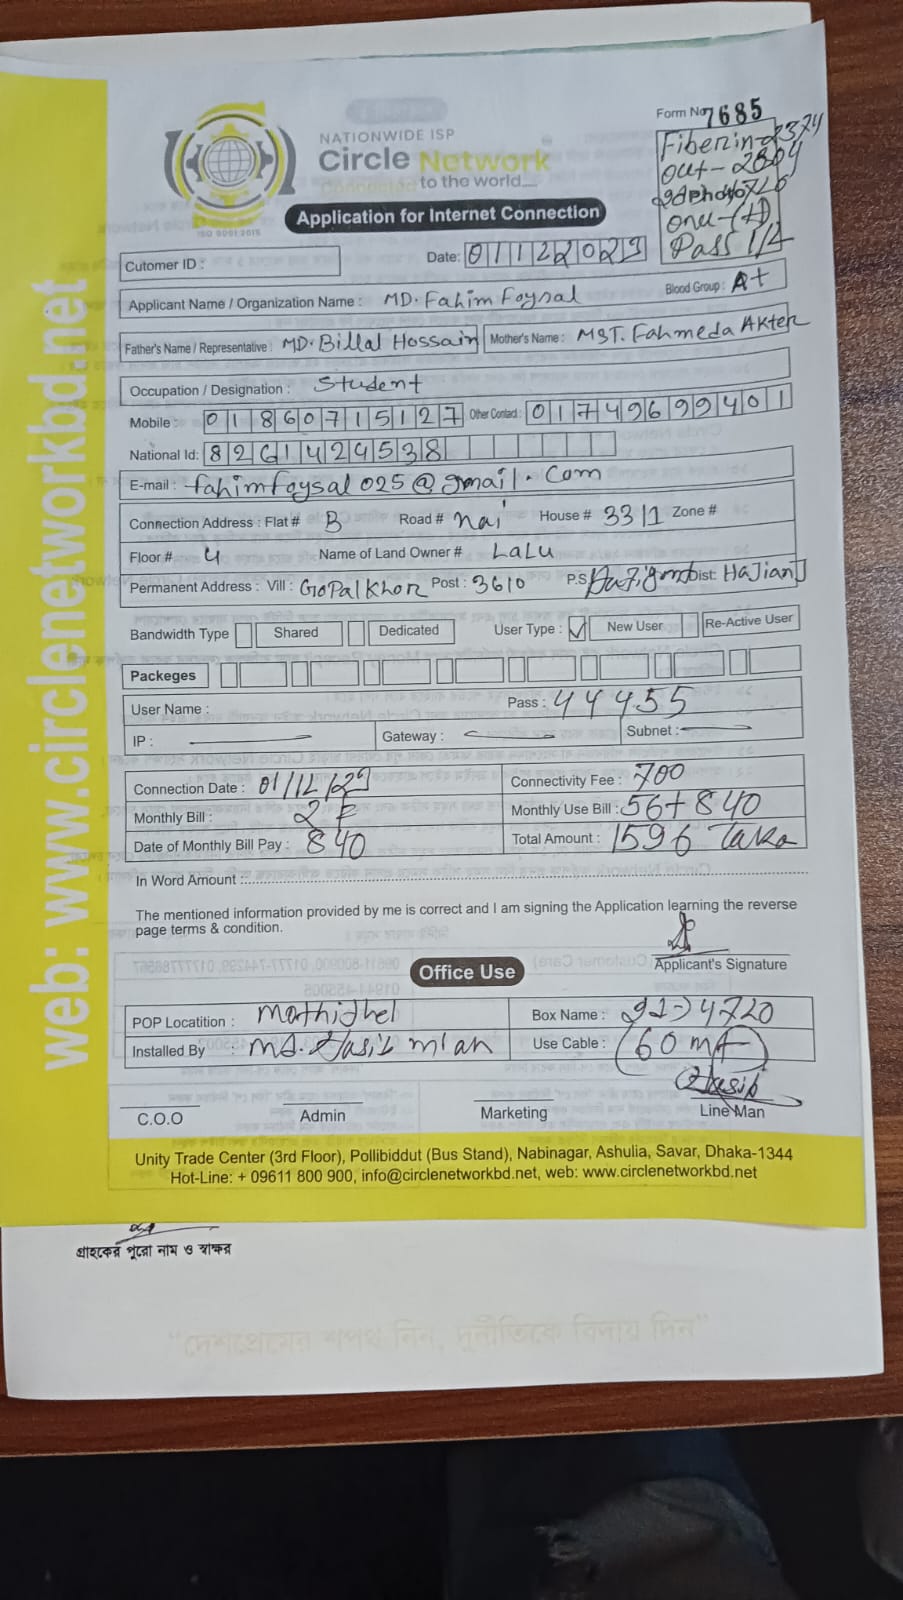 Form No 7685
NATIONWIDE ISP
Circle Network
Connected to the world.....
ISO 9001:2015
Fiber in - 2374
out - 2804
onu - (1)
Pass 1/A
Application for Internet Connection
Cutomer ID :
Date: 01122023
Applicant Name / Organization Name : MD. Fahim Foysal Blood Group : A+
Father's Name / Representative : MD. Billal Hossain Mother's Name : MST. Fahmeda AKter
Occupation / Designation : Student
Mobile : 01860715127 Other Contact : 01749699401
National Id: 8261424538
E-mail : fahimfoysal025@gmail.com
Connection Address : Flat # B Road # nai House # 33/1 Zone #
Floor # 4 Name of Land Owner # LaLu
Permanent Address : Vill : GoPalKhor Post : 3610 P.S Dist: HaJianJ
Bandwidth Type Shared Dedicated User Type : ✓ New User Re-Active User
Packeges
User Name : Pass : 44455
IP : Gateway : Subnet :
Connection Date : 01/12/23 Connectivity Fee : 700
Monthly Bill : Monthly Use Bill : 56+840
Date of Monthly Bill Pay : 840 Total Amount : 1596 Taka
In Word Amount :
The mentioned information provided by me is correct and I am signing the Application learning the reverse
page terms & condition.
Applicant's Signature
Office Use
POP Locatition : Mothijhel Box Name : 4720
Installed By : Md. Hasib mian Use Cable : 60 mt
Hasib
C.O.O Admin Marketing Line Man
Unity Trade Center (3rd Floor), Pollibiddut (Bus Stand), Nabinagar, Ashulia, Savar, Dhaka-1344
Hot-Line: + 09611 800 900, info@circlenetworkbd.net, web: www.circlenetworkbd.net
web: www.circlenetworkbd.net
গ্রাহকের পুরো নাম ও স্বাক্ষর
“দেশপ্রেমের শপথ নিন, দুর্নীতিকে বিদায় দিন”